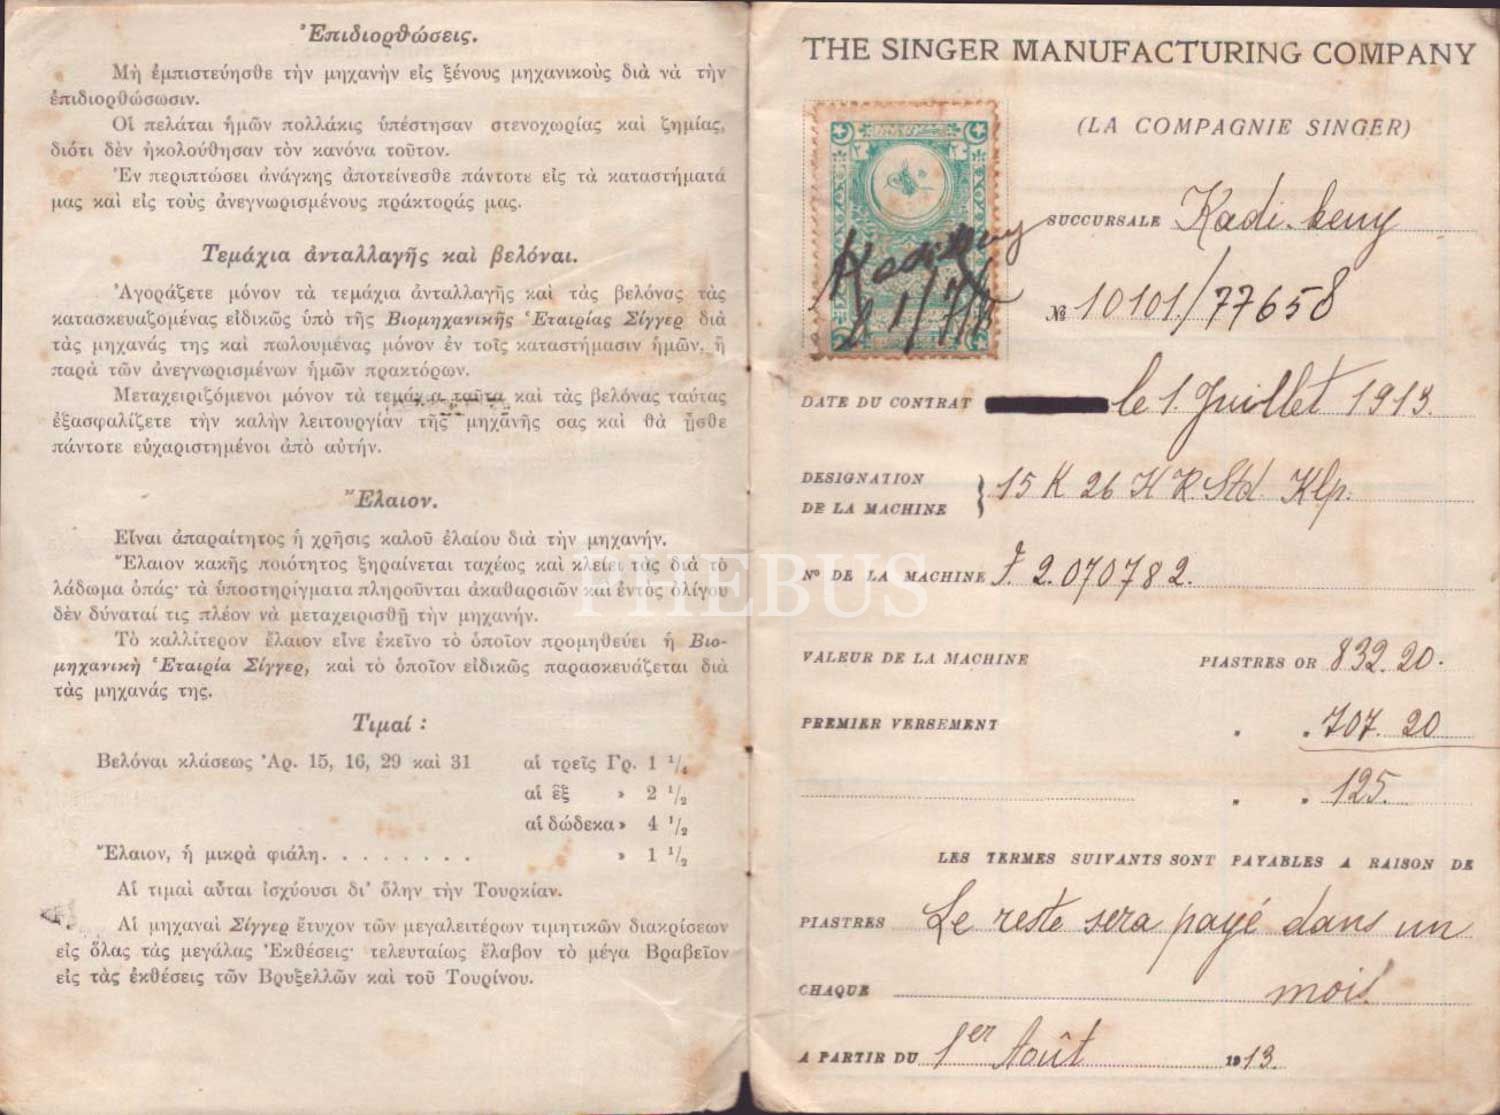 Ἐπιδιορθώσεις.
Μὴ ἐμπιστεύησθε τὴν μηχανὴν εἰς ξένους μηχανικοὺς διὰ νὰ τὴν
ἐπιδιορθώσωσιν.
Οἱ πελάται ἡμῶν πολλάκις ὑπέστησαν στενοχωρίας καὶ ζημίας,
διότι δὲν ἠκολούθησαν τὸν κανόνα τοῦτον.
Ἐν περιπτώσει ἀνάγκης ἀποτείνεσθε πάντοτε εἰς τὰ καταστήματά
μας καὶ εἰς τοὺς ἀνεγνωρισμένους πράκτοράς μας.
Τεμάχια ἀνταλλαγῆς καὶ βελόναι.
Ἀγοράζετε μόνον τὰ τεμάχια ἀνταλλαγῆς καὶ τὰς βελόνας τὰς
κατασκευαζομένας εἰδικῶς ὑπὸ τῆς Βιομηχανικῆς Ἑταιρίας Σίγγερ διὰ
τὰς μηχανάς της καὶ πωλουμένας μόνον ἐν τοῖς καταστήμασιν ἡμῶν, ἢ
παρὰ τῶν ἀνεγνωρισμένων ἡμῶν πρακτόρων.
Μεταχειριζόμενοι μόνον τὰ τεμάχια ταῦτα καὶ τὰς βελόνας ταύτας
ἐξασφαλίζετε τὴν καλὴν λειτουργίαν τῆς μηχανῆς σας καὶ θὰ ἦσθε
πάντοτε εὐχαριστημένοι ἀπὸ αὐτήν.
Ἔλαιον.
Εἶναι ἀπαραίτητος ἡ χρῆσις καλοῦ ἐλαίου διὰ τὴν μηχανήν.
Ἔλαιον κακῆς ποιότητος ξηραίνεται ταχέως καὶ κλείει τὰς διὰ τὸ
λάδωμα ὀπάς· τὰ ὑποστηρίγματα πληροῦνται ἀκαθαρσιῶν καὶ ἐντὸς ὀλίγου
δὲν δύναταί τις πλέον νὰ μεταχειρισθῇ τὴν μηχανήν.
Τὸ καλλίτερον ἔλαιον εἶνε ἐκεῖνο τὸ ὁποῖον προμηθεύει ἡ Βιο-
μηχανικὴ Ἑταιρία Σίγγερ, καὶ τὸ ὁποῖον εἰδικῶς παρασκευάζεται διὰ
τὰς μηχανάς της.
Τιμαί :
Βελόναι κλάσεως Ἀρ. 15, 16, 29 καὶ 31 αἱ τρεῖς Γρ. 1 1/4
αἱ ἓξ » 2 1/2
αἱ δώδεκα » 4 1/2
Ἔλαιον, ἡ μικρὰ φιάλη. . . . . . . . » 1 1/2
Αἱ τιμαὶ αὗται ἰσχύουσι δι' ὅλην τὴν Τουρκίαν.
Αἱ μηχαναὶ Σίγγερ ἔτυχον τῶν μεγαλειτέρων τιμητικῶν διακρίσεων
εἰς ὅλας τὰς μεγάλας Ἐκθέσεις· τελευταίως ἔλαβον τὸ μέγα Βραβεῖον
εἰς τὰς ἐκθέσεις τῶν Βρυξελλῶν καὶ τοῦ Τουρίνου.
THE SINGER MANUFACTURING COMPANY
(LA COMPAGNIE SINGER)
SUCCURSALE Kadi-keuy
№ 10101/77658
DATE DU CONTRAT le 1 Juillet 1913.
DESIGNATION
DE LA MACHINE } 15 K 26 H R. Std. Klp.
N° DE LA MACHINE F. 2.070782.
VALEUR DE LA MACHINE PIASTRES OR 832.20.
PREMIER VERSEMENT " " 707.20
" " 125.
LES TERMES SUIVANTS SONT PAYABLES A RAISON DE
PIASTRES Le reste sera payé dans un
CHAQUE mois.
A PARTIR DU 1er Août 1913.
PHEBUS